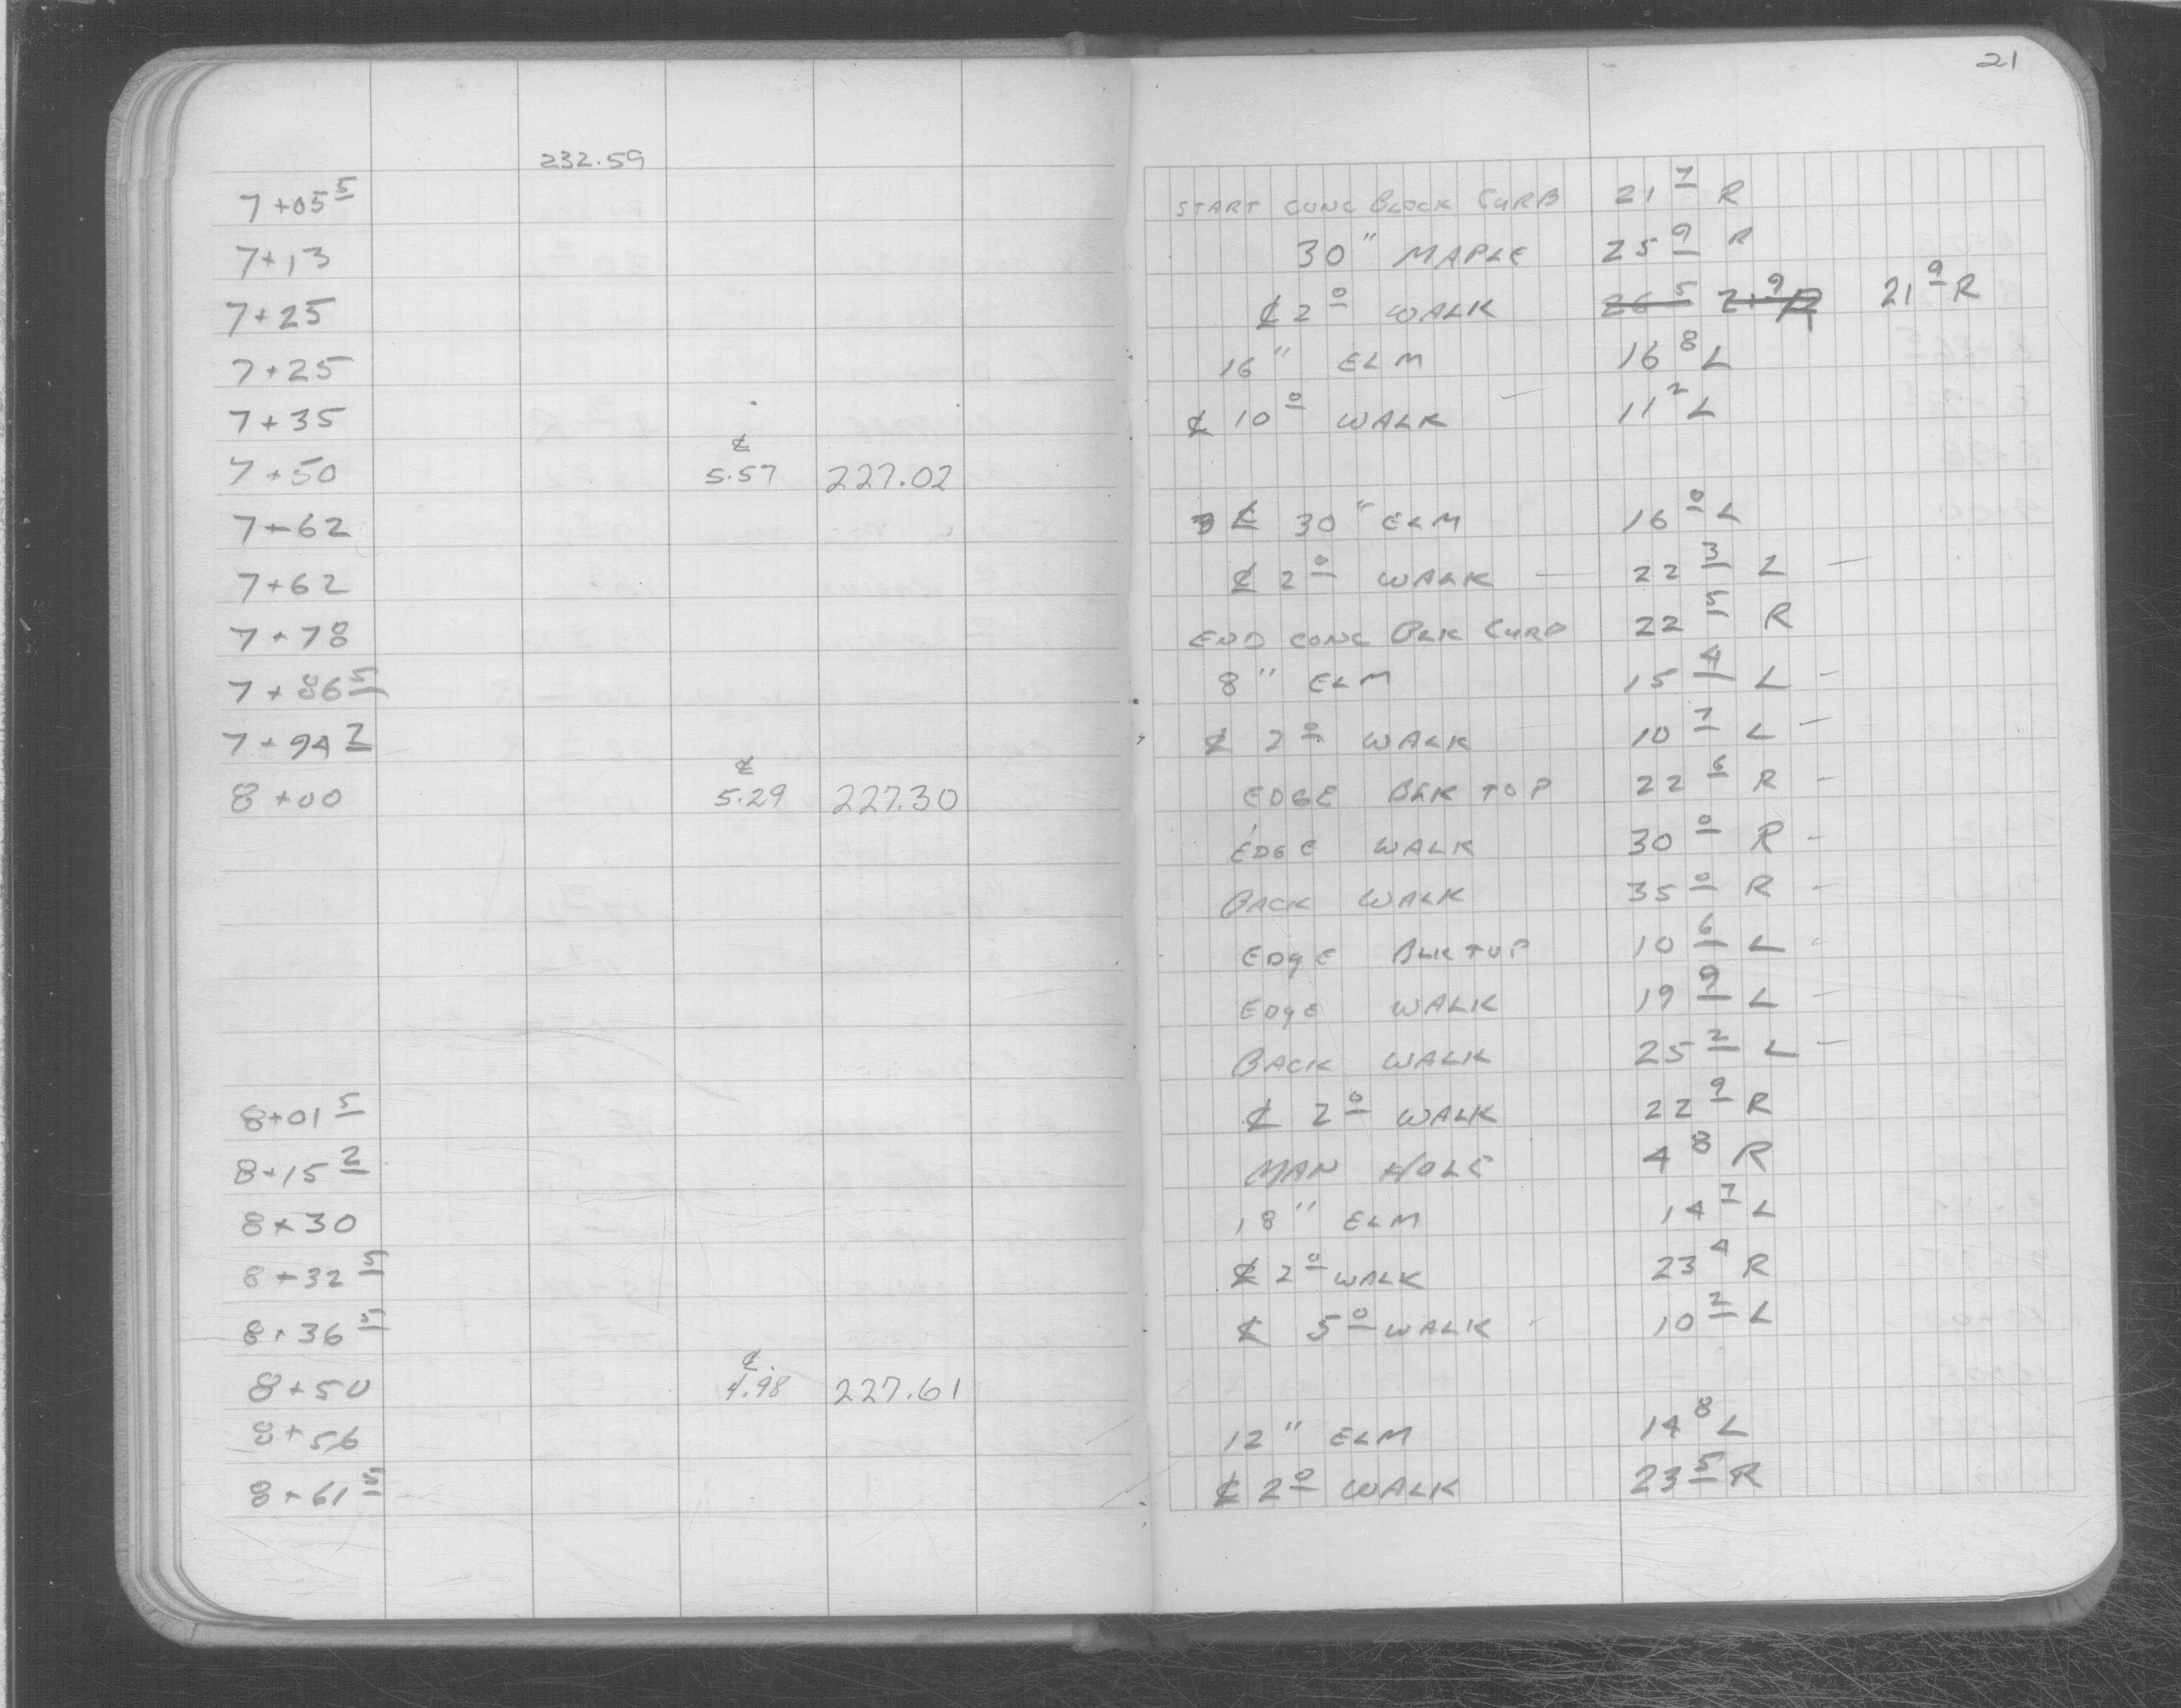 21
232.59
7+05 5 START CONC BLOCK CURB 21 7 R
7+13 30" MAPLE 25 9 R
7+25 ℄ 2 0 WALK 26 5 21 9 R 21 9 R
7+25 16" ELM 16 8 L
7+35 ℄ 10 0 WALK 11 2 L
℄
7+50 5.57 227.02
7+62 ℄ 30" ELM 16 0 L
7+62 ℄ 2 0 WALK - 22 3 L -
7+78 END CONC BLK CURB 22 5 R
7+86 5 8" ELM 15 4 L -
7+94 7 ℄ 2 0 WALK 10 7 L -
℄
8+00 5.29 227.30 EDGE BLK TOP 22 6 R -
EDGE WALK 30 0 R -
BACK WALK 35 0 R -
EDGE BLK TOP 10 6 L -
EDGE WALK 19 9 L -
BACK WALK 25 2 L -
8+01 5 ℄ 2 0 WALK 22 9 R
8+15 2 MAN HOLE 4 8 R
8+30 18" ELM 14 7 L
8+32 5 ℄ 2 0 WALK 23 4 R
8+36 5 ℄ 5 0 WALK 10 2 L
℄
8+50 4.98 227.61
8+56 12" ELM 14 8 L
8+61 5 ℄ 2 0 WALK 23 5 R